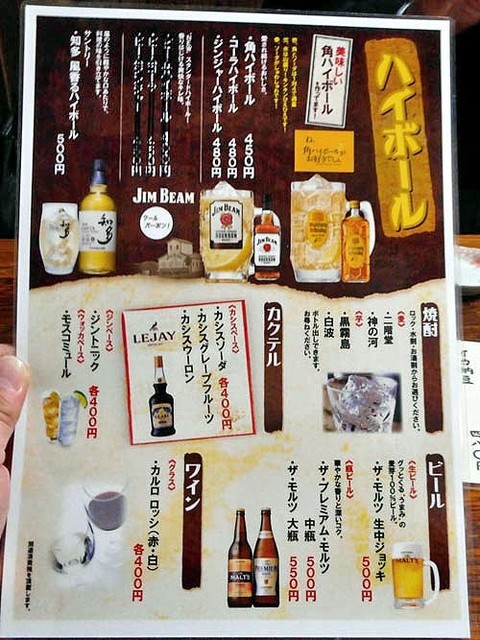 ハイボール
美味しい
角ハイボール
あります!
ね、
角ハイボールが
お好きでしょ
愛され続けるおいしさ。
・角ハイボール 450円
・コーラハイボール 480円
・ジンジャーハイボール 480円
JIM BEAM
クール
バーボン!
サントリー
・知多 風香るハイボール
500円
知多
焼酎
ロック・水割・お湯割からお選びください。
《麦》
・二階堂
・神の河
《芋》
・黒霧島
・白波
ボトル出しできます。
お尋ねください。
カクテル
《カシスベース》
・カシスソーダ
・カシスグレープフルーツ
・カシスウーロン
各400円
LEJAY
《ジンベース》
・ジントニック
《ウォッカベース》
・モスコミュール
各400円
ビール
《生ビール》
グッとくる、うまみ。の
麦芽100%ビール。
・ザ・モルツ 生中ジョッキ
500円
《瓶ビール》
華やかな香りと深いコク。
・ザ・プレミアム・モルツ
中瓶 500円
・ザ・モルツ 大瓶 550円
ワイン
《グラス》
・カルロ ロッシ(赤・白)
各400円